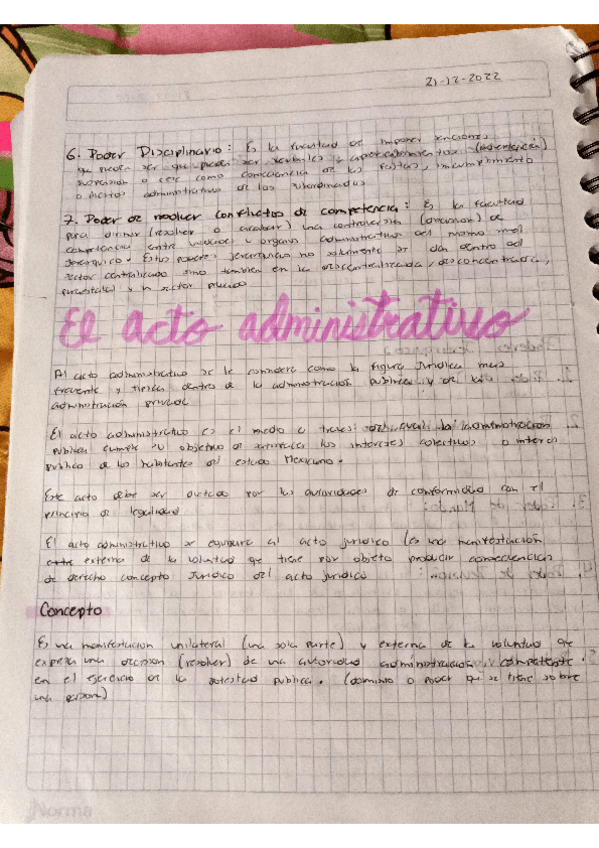 21-12-2022
6. Poder Disciplinario: Es la facultad de imponer sanciones,
que puede ser que puedes ser verbales apercibimientos (advertencia)
suspensión o cese como consecuencia de las faltas, incumplimiento
o ilícitos administrativos de los subordinados
7. Poder de resolver conflictos de competencia: Es la facultad
para dirimir (resolver o acabar) una controversia (discusion) de
competencias entre unidades u organos administrativos del mismo nivel
jerarquico. Estos poderes jerarquicos no solamente se dan dentro del
sector centralizado sino tambien en la descentralizada, desconcentrada,
paraestatal y sector privado
El acto administrativo
Al acto administrativo se le considera como la figura juridica mas
frecuente y tipica dentro de la administracion publica y de la
administración privada
El acto administrativo es el medio a traves del cual la administracion
publica cumple su objetivo de satisfacer los intereses colectivos o interes
publico de los habitantes del estado Mexicano.
Este acto debe ser dictado por las autoridades de conformidad con el
principio de legalidad
El acto administrativo se equipara al acto juridico (es una manifestación
externa de la voluntad que tiene por objeto producir consecuencias
de derecho concepto Juridico del acto juridico
Concepto
Es una manifestacion unilateral (una sola parte) y externa de la voluntad que
expresa una decision (resolver) de una autoridad administracion competente
en el ejercicio de la potestad publica. (dominio o Poder que se tiene sobre
una persona)
Norma